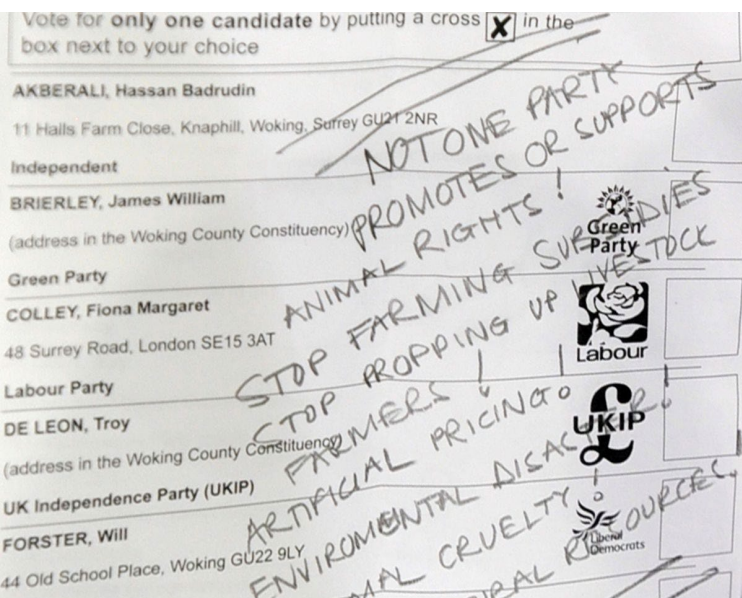 Vote for only one candidate by putting a cross X in the
box next to your choice
AKBERALI, Hassan Badrudin
11 Halls Farm Close, Knaphill, Woking, Surrey GU21 2NR
Independent
BRIERLEY, James William
(address in the Woking County Constituency)
Green Party
Green
Party
COLLEY, Fiona Margaret
48 Surrey Road, London SE15 3AT
Labour Party
Labour
DE LEON, Troy
(address in the Woking County Constituency)
UK Independence Party (UKIP)
UKIP
FORSTER, Will
44 Old School Place, Woking GU22 9LY
Liberal
Democrats
NOT ONE PARTY
PROMOTES OR SUPPORTS
ANIMAL RIGHTS!
STOP FARMING SUBSIDIES
STOP PROPPING UP LIVESTOCK
FARMERS!
ARTIFICIAL PRICING!
ENVIROMENTAL DISASTER!
CRUELTY!
RESOURCES